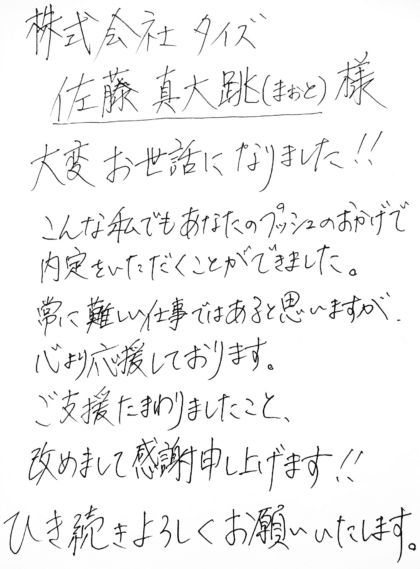 株式会社 タイズ
佐藤 真大跳(まおと) 様
大変 お世話になりました!!
こんな私でもあなたのプッシュのおかげで
内定をいただくことができました。
常に難しい仕事ではあると思いますが、
心より応援しております。
ご支援たまわりましたこと、
改めまして感謝申し上げます!!
ひき続きよろしくお願いいたします。